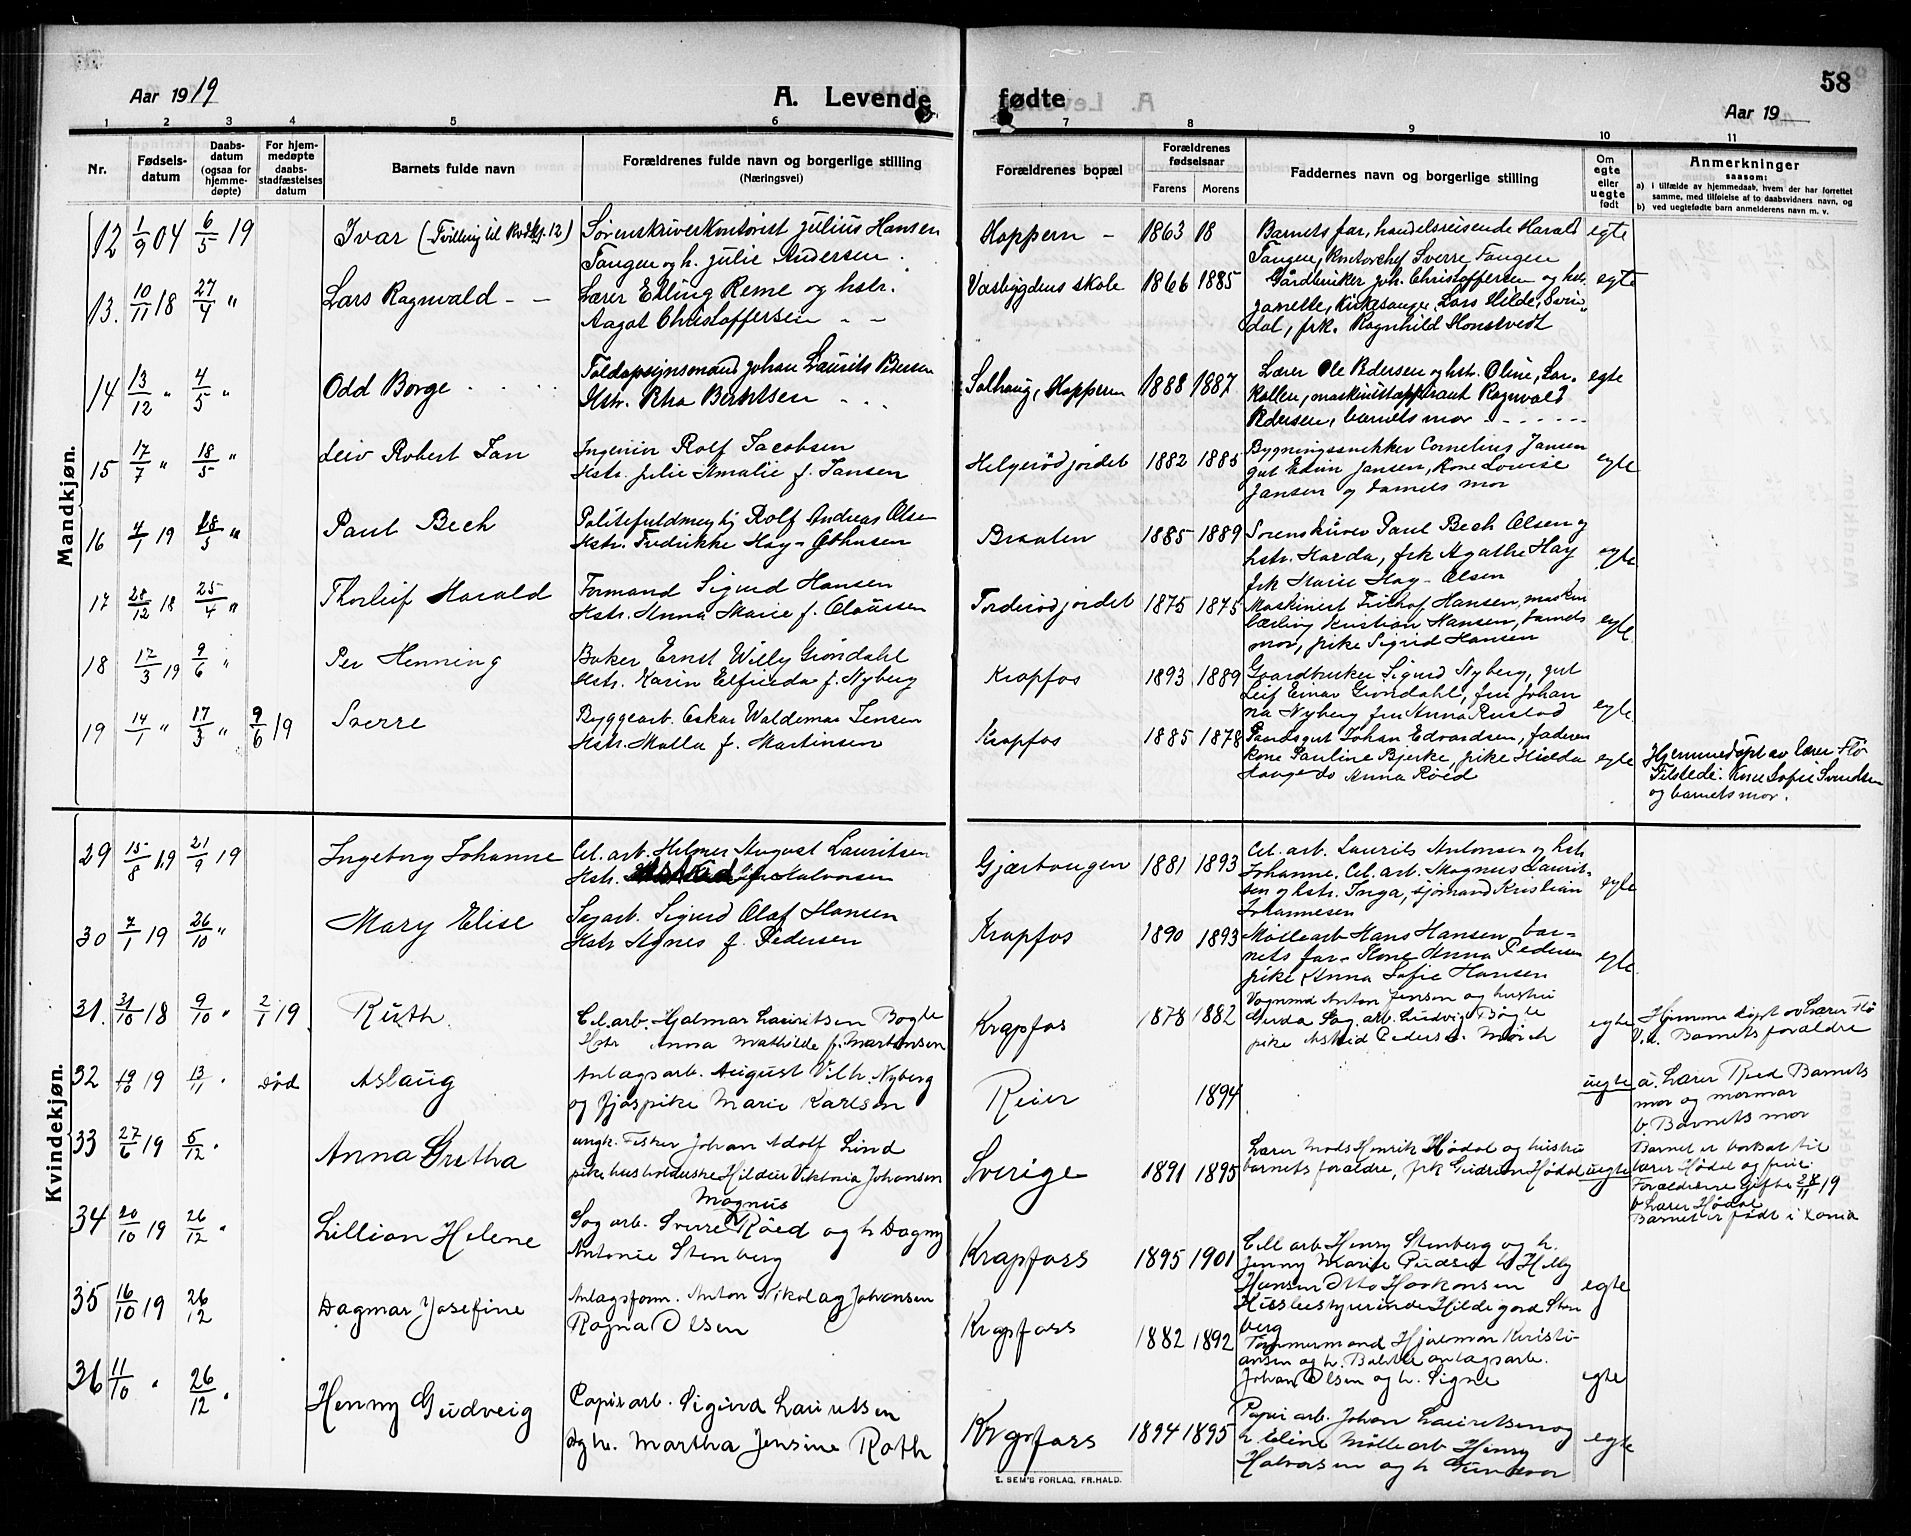 58
Aar 1919
A. Levende fødte
Aar 19
1 2 3 4 5 6 7 8 9 10 11
Nr. Fødsels-datum Daabs-datum (ogsaa for hjemme-døpte) For hjem-medøpte daabs-stadfæstelses datum Barnets fulde navn Forældrenes fulde navn og borgerlige stilling (Næringsvei) Forældrenes bopæl Forældrenes fødselsaar Farens Morens Faddernes navn og borgerlige stilling Om egte eller uegte født Anmerkninger saasom:
a) i tilfælde av hjemmedaab, hvem der har forrettet samme, med tilføielse af to daabsvidners navn, og
b) ved uegtefødte barn anmelderens navn m. v.
Mandkjøn.
12 1/9 04 6/5 19 Ivar (Tvilling til Kvdkj. 12) Sorenskriverkontorist Julius Hansen Hoppern - 1863 18 Barnets far, handelsreisende Harald egte
Tangen og h. Julie Andersen. Tangen, kontorchef Sverre Tangen
13. 10/11 18 27/4 " Lars Ragnvald - - Lærer Elling Reme og hstr. Vasbygdens skole 1866 1885 Gårdbruker Joh. Christoffersen og hst. egte
Aagot Christoffersen - - Janelle, kirkesanger Lars Hilde, Svin-
dal, frk. Ragnhild Honstvedt
14 13/12 " 4/5 " Odd Borge Toldopsynsmand Johan Laurits Pedersen Solhaug, Hoppern 1888 1887 Lærer Ole Pedersen og hst. Oline, Lar- egte
Hstr. Rha Berntsen - - - kollen, maskinistaspirant Ragnvald
Pedersen, barnets mor
15 17/7 " 18/5 " Leiv Robert Jan Ingeniør Rolf Jacobsen Helgerødjordet 1882 1885 Bygningssnekker Cornelius Jansen egte
Hstr. Julie Amalie f. Jansen gut Edvin Jansen, Kone Lovise
Jansen og barnets mor
16 4/1 19 18/5 " Paul Bech Politifuldmegtig Rolf Andreas Olsen Braaten 1885 1889 Sorenskriver Paul Bech Olsen og
Hstr. Fredrikke Hay- hstr. Harda, frk Agathe Hay egte
frk Marie Hay-Olsen
17 28/12 18 25/4 " Thorleif Harald Formand Sigurd Hansen Torderødjordet 1875 1875 Maskinist Frithof Hansen, maskin
Hstr. Anna Marie f. Claussen lærling Kristian Hansen, barnets egte
mor, pike Sigrid Hansen
18 17/3 19 9/6 " Per Henning Baker Ernst Willy Grøndahl Krapfos 1893 1889 Gaardbruker Sigurd Nyberg, gut
Hstr. Karin Elfrieda f. Nyberg Leif Einar Grøndahl, fru Johan
na Nyberg fru Anna Rustad egte
19 14/1 " 17/3 " 9/6 19 Sverre Byggearb. Oskar Waldemar Jensen Krapfos 1885 1878 Johan Edvardsen, faderen
Hstr. Malla f. Martinsen kone Pauline Bjerke, pike Hilda egte Hjemmedøpt av lærer Flø
Haugerds Anna Røed Tilstede: Kone Sofie Svendsen
og barnets mor.
Kvindekjøn.
29 15/8 19 21/9 19 Ingeborg Johanne Cel. arb. Helmer August Lauritsen Gjærhaugen 1881 1893 Cel. arb. Laurits Antonsen og hstr
Hstr. f. Halvorsen Johanne. Cel. arb. Magnus Laurit-
sen og hstr. Inga, sjømand Kristian egte
Johannesen
30 7/1 19 26/10 " Mary Elise Sagarb. Sigurd Olaf Hansen Krapfos 1890 1893 Møllearb Hans Hansen, bar-
Hstr Agnes f. Pedersen nets far - Kone Anna Pedersen
pike Anna Sofie Hansen egte
31. 31/10 18 9/10 " 2/1 19 Ruth. Cel. arb. Hjalmar Lauritsen Bøgle Krapfos 1878 1882 Vognmd Anton Jensen og hustru
Hstr Anna Mathilde f. Martinsen Gerda Sag. arb. Ludvig Bøgle egte Hjemme døpt av Lærer Flø
pike Astrid Pederse. Mørch V.v. Barnets forældre
32 19/10 19 13/11 " død Aslaug Anlagsarb. August Vilh. Nyberg Reier 1894 uegte a. Lærer Røed Barnets
og fjøspike Marie Karlsen mor og mormor
b Barnets mor
33 27/6 19 5/12 " Anna Gretha ungk. Fisker Johan Adolf Lind Sverige 1891 1895 Lærer Mads Henrik Hødal og hustru Barnet er bortsat til
pike husholderske Hildur Viktoria Johansen barnets forældre, frk Gudrun Hødal uegte lærer Hødal og frue.
Forældrene Gifte 28/11 19
b Lærer Hødal
Barnet er født i Xania
34 20/10 19 26/12 " Lillian Helene Magnus
Sag arb. Sverre Røed og h Dagny Krapfoss 1895 1901 Cell arb Henry Stenberg og h.
Antonie Stenberg Jenny Marie h Helly
Hansen Otto Haakonsen egte
Hildegard Sten
berg
35 16/10 19 26/12 Dagmar Josefine Anlagsform. Anton Nikolay Johansen Krapfoss 1882 1892 Tømmermand Hjalmar Kristi-
Ragna Olsen ansen og h. anlagsarb.
Johan Olsen og h. Signe egte
36 11/10 " 26/12 " Henny Gudveig Papirarb. Sigurd Lauritsen Krapfoss 1894 1895 Papir arb. Johan Lauritsen og egte
og h. Martha Jensine Roth h Eline Mølle arb Henry
Halvorsen og h Gundvor
E. SEM'S FORLAG, FR.HALD.